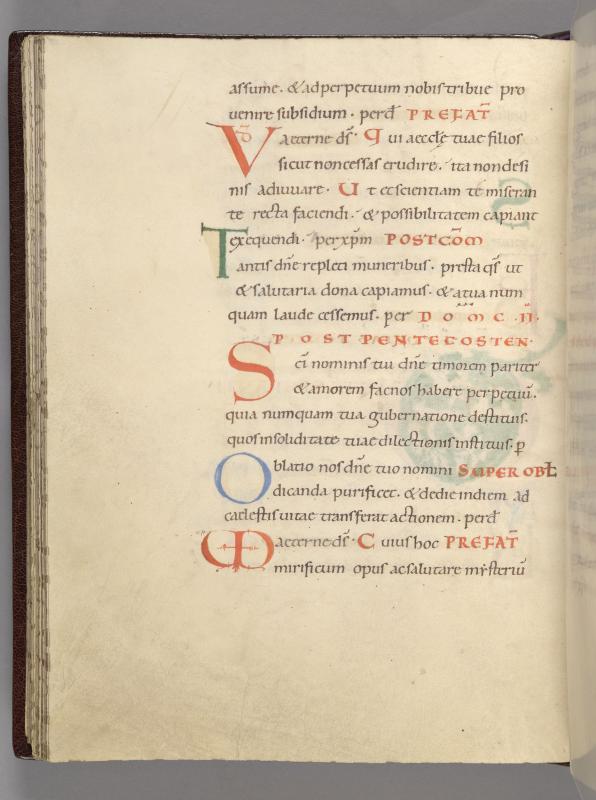 assume. & adperpetuum nobis tribue pro
uenire subsidium. perd̄ PREFAT̄
V̄D̄ Aeterne ds̄. Qui aeccłę tuae filios
sicut non cessas erudire. ita non desi
nis adiuuare. Ut et scientiam te miseran
te recta faciendi. & possibilitatem capiant
exequendi. per xp̄m POSTCŌM
Tantis dn̄e repleti muneribus. presta qs̄ ut
& salutaria dona capiamus. & a tua num
quam laude cessemus. per DOMC .II.
POST PENTECOSTEN.
Sc̄i nominis tui dn̄e timorem pariter
& amorem fac nos habere perpetuū.
quia numquam tua gubernatione destituis.
quos in soliditate tuae dilectionis instituis. p̄
Oblatio nos dn̄e tuo nomini SUPER OBL̄
dicanda purificet. & de die in diem ad
caelestis uitae transferat actionem. perd̄
aeterne ds̄. Cuius hoc PREFAT̄
mirificum opus ac salutare mysteriū